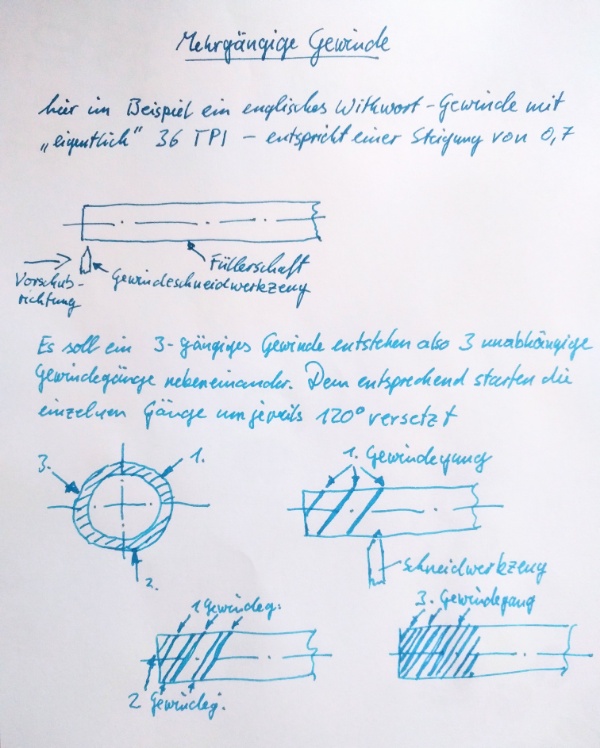 Mehrgängige Gewinde
hier im Beispiel ein englisches Withwort-Gewinde mit
„eigentlich" 36 TPI – entspricht einer Steigung von 0,7
Füllerschaft
Vorschub-
richtung
Gewindeschneidwerkzeug
Es soll ein 3-gängiges Gewinde entstehen also 3 unabhängige
Gewindegänge nebeneinander. Dem entsprechend starten die
einzelnen Gänge um jeweils 120° versetzt
3.
1.
2.
1. Gewindegang
Schneidwerkzeug
1 Gewindeg.
2 Gewindeg.
3. Gewindegang